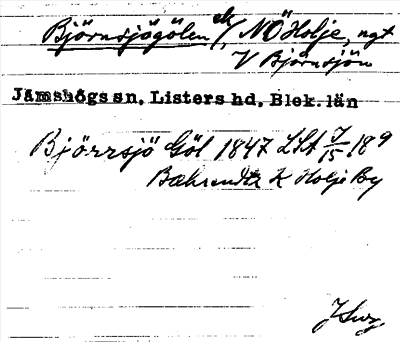 Björnsjögölen ek/, NÖ Holje, ngt
V Björnsjön
Jämshögs sn, Listers hd, Blek. län
Björrsjö Göl 1847 LSA J/15 189
K Holje By